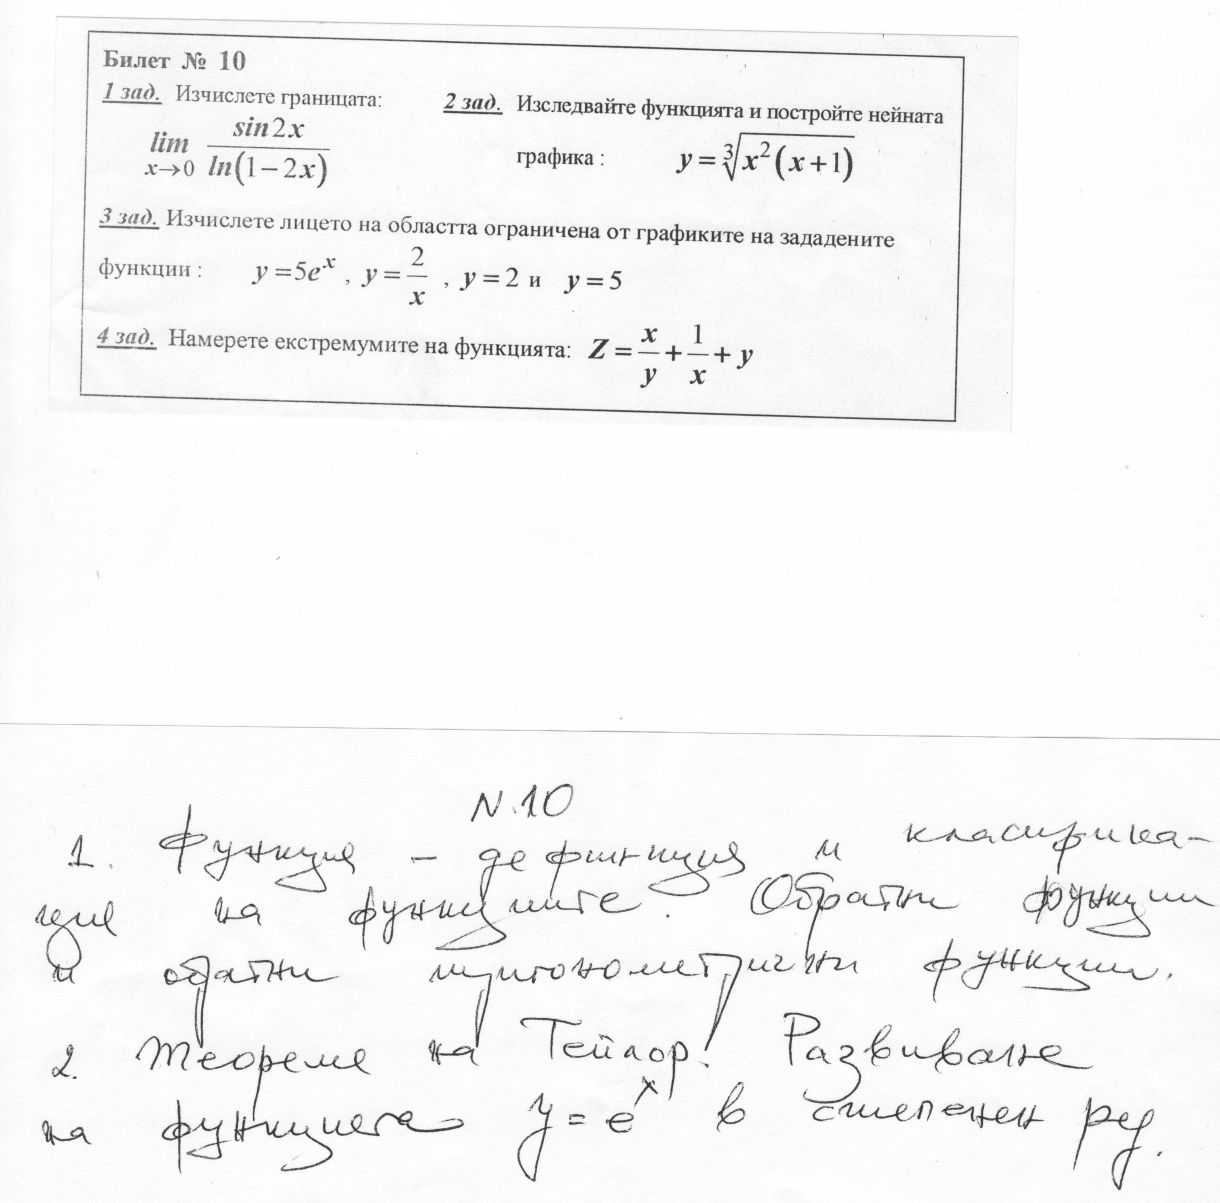 Билет № 10
1 зад. Изчислете границата:
lim x→0 sin2x / ln(1−2x)
2 зад. Изследвайте функцията и постройте нейната
графика : y = ∛(x²(x+1))
3 зад. Изчислете лицето на областта ограничена от графиките на зададените
функции : y = 5eˣ , y = 2/x , y = 2 и y = 5
4 зад. Намерете екстремумите на функцията: Z = x/y + 1/x + y
N.10
1. Функция – дефиниция и класифика-
ция на функциите. Обратни функции
и обратни тригонометрични функции.
2. Теорема на Тейлор. Развиване
на функцията y = eˣ в степенен ред.